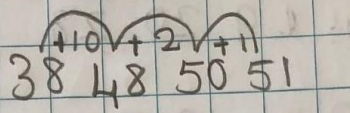 +10 + 2 + 1
38 48 50 51